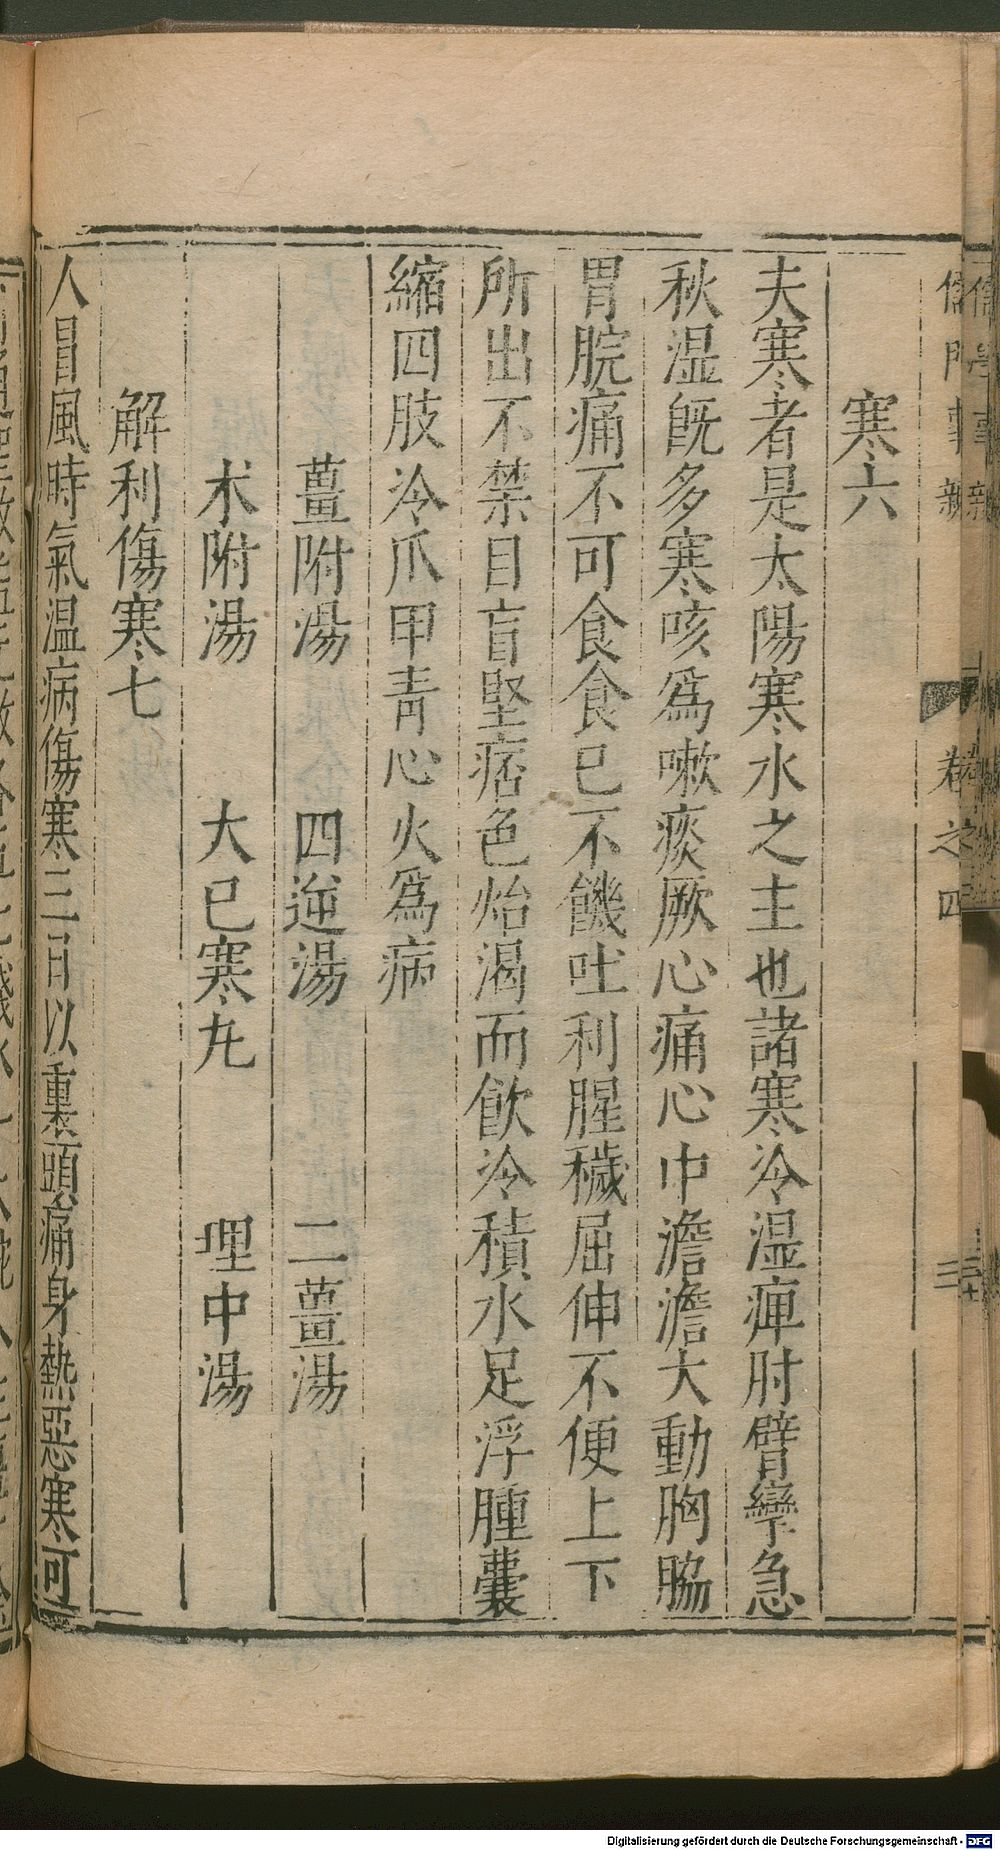 寒六
夫寒者是太陽寒水之主也諸寒冷湿痺肘臂攣急
秋湿旣多寒咳爲嗽痰厥心痛心中澹澹大動胸脇
胃脘痛不可食食已不饑吐利腥穢屈伸不便上下
所出不禁目盲堅痞色怡渴而飮冷積水足浮腫囊
縮四肢冷爪甲靑心火爲病
薑附湯 四逆湯 二薑湯
朮附湯 大已寒丸 理中湯
解利傷寒七
人冒風時氣温病傷寒三日以裏頭痛身熱惡寒可
儒門事親 卷之四
Digitalisierung gefördert durch die Deutsche Forschungsgemeinschaft - DFG